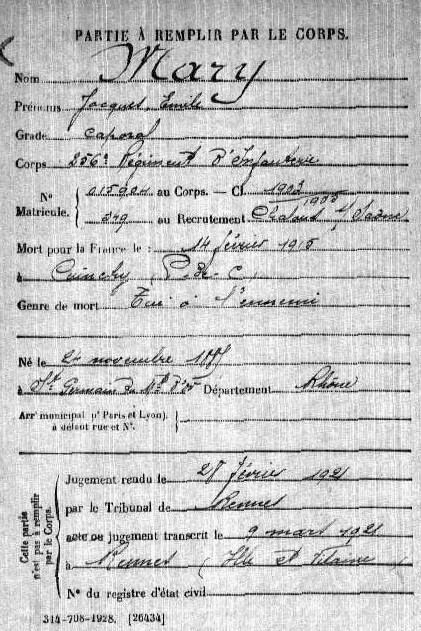 PARTIE À REMPLIR PAR LE CORPS.
Nom Mary
Prénoms Jacques Emile
Grade caporal
Corps 256e Régiment d'Infanterie
Nº Matricule. { 015904 au Corps. — Cl. 1903 1905
549 au Recrutement Chalons s/ Saône
Mort pour la France le : 14 février 1915
à Cuinchy (P. de C.)
Genre de mort Tué à l'ennemi
Né le 24 novembre
à St Germain du Mt d'Or Département Rhône
Arrt municipal (pr Paris et Lyon),
à défaut rue et Nº.
Cette partie n'est pas à remplir par le Corps.
Jugement rendu le février 1921
par le Tribunal de Rennes
acte ou jugement transcrit le 9 mars 1921
à Rennes (Ille et Vilaine)
Nº du registre d'état civil
314-708-1928. [26434]